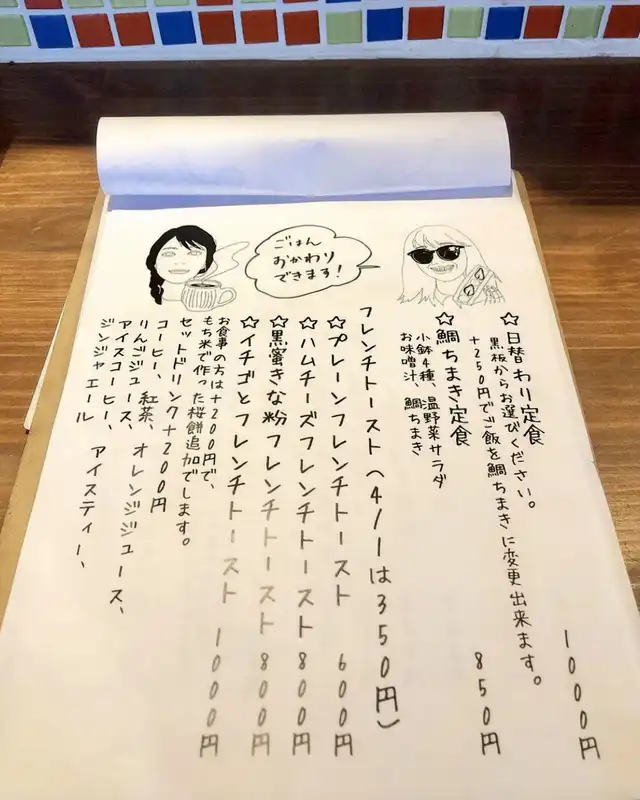 ごはん
おかわり
できます！
☆日替わり定食 1000円
黒板からお選びください。
+250円でご飯を鯛ちまきに変更出来ます。
☆鯛ちまき定食 850円
小鉢4種、温野菜サラダ
お味噌汁、鯛ちまき
フレンチトースト(4/1は350円)
☆プレーンフレンチトースト 600円
☆ハムチーズフレンチトースト 800円
☆黒蜜きな粉フレンチトースト 800円
☆イチゴとフレンチトースト 1000円
お食事の方は+200円で、
もち米で作った桜餅追加でします。
セットドリンク+200円
コーヒー、紅茶、オレンジジュース、
りんごジュース、
アイスコーヒー、アイスティー、
ジンジャエール